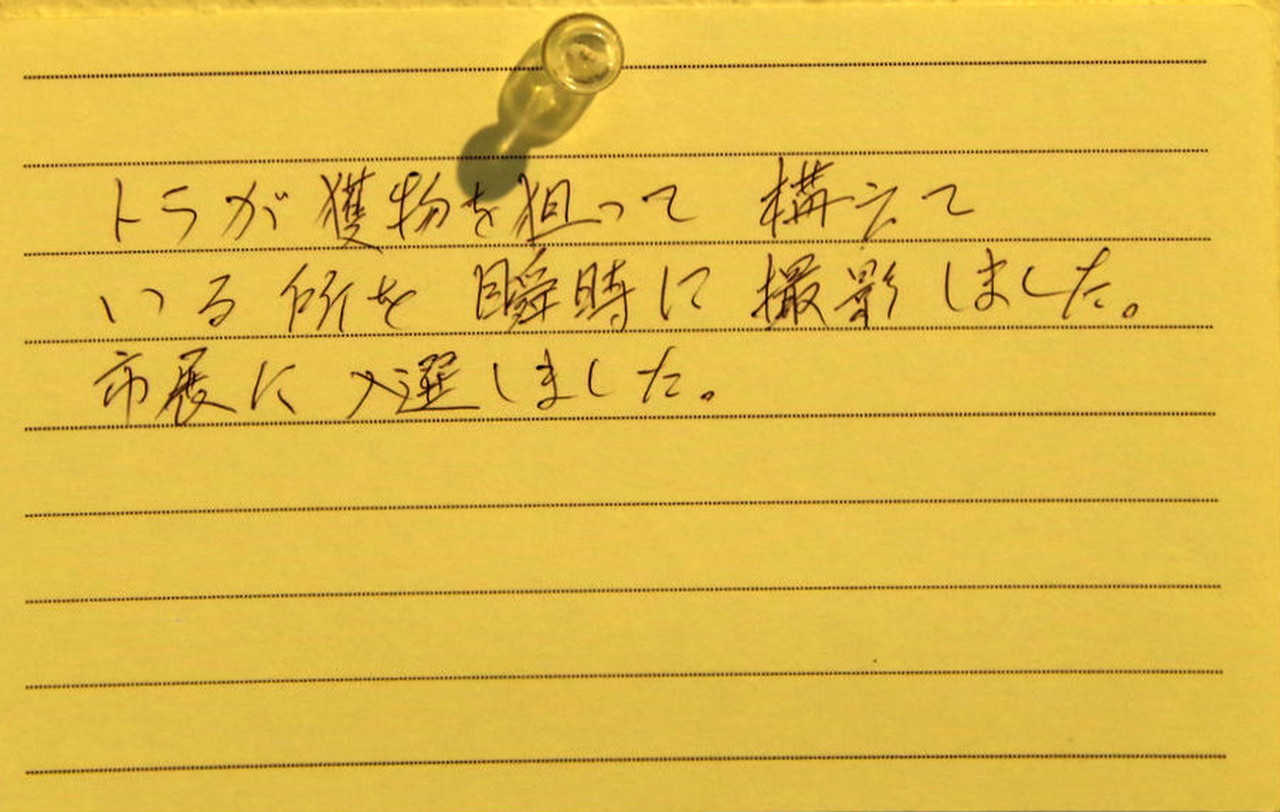 トラが獲物を狙って 構えて
いる所を 瞬時に 撮影しました。
市展に 入選しました。